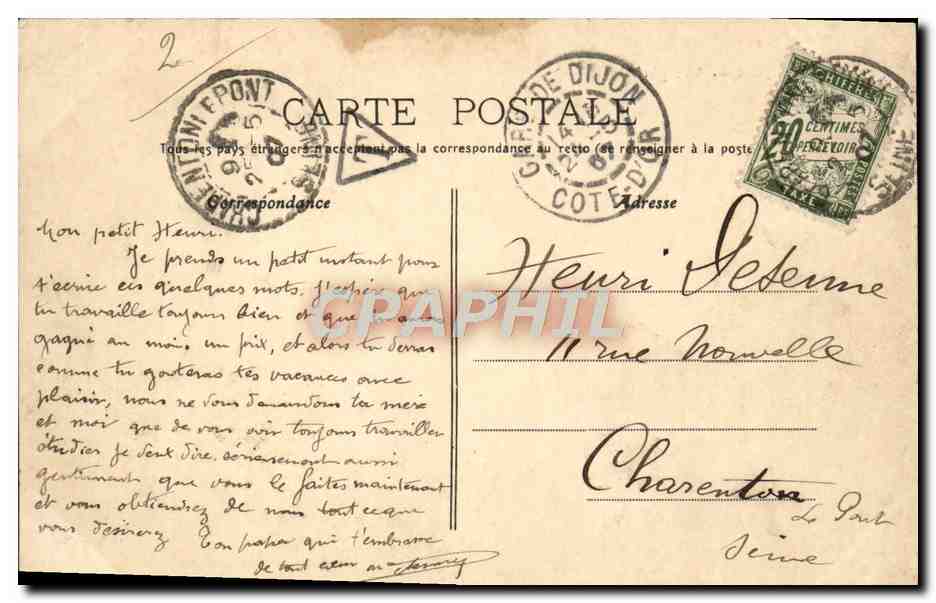 2
CARTE POSTALE
Tous les pays étrangers n'acceptent pas la correspondance au recto (se renseigner à la poste
Correspondance
Adresse
CHARENTON LE PONT
SEINE
T
GARE DE DIJON
COTE-D'OR
CHIFFRE
20 CENTIMES
A PERCEVOIR
POSTES
TAXE
SEINE
CPAPHIL
Mon petit Henri.
Je prends un petit instant pour
t'écrire ces quelques mots. J'espère que
tu travailles toujours bien et que tu auras
gagné au moins un prix, et alors tu verras
comme tu gouteras tes vacances avec
plaisir, nous ne vous demandons ta mère
et moi que de vous voir toujours travailler
étudier je veux dire, sérieusement aussi
gentiment que vous le faites maintenant
et vous obtiendrez de nous tout ce que
vous désirerez Ton papa qui t'embrasse
de tout cœur
Henri Desenne
11 rue Nouvelle
Charenton
Le Pont
Seine